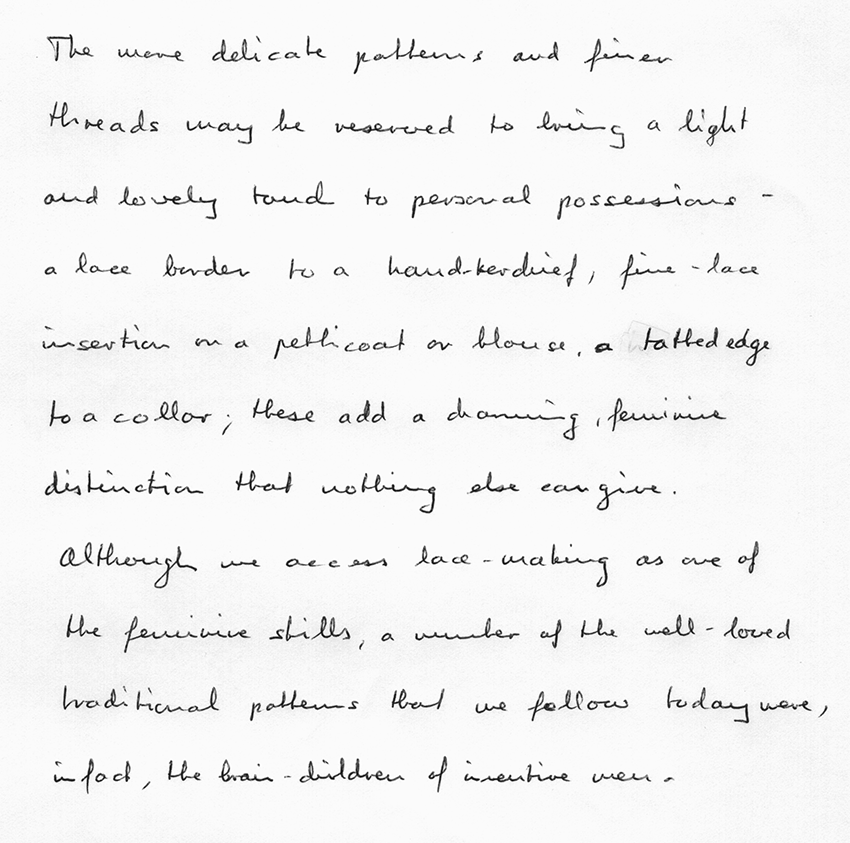 The more delicate patterns and finer
threads may be reserved to bring a light
and lovely touch to personal possessions -
a lace border to a hand-kerchief, fine-lace
insertion on a petticoat or blouse, a tatted edge
to a collar; these add a charming, feminine
distinction that nothing else can give.
Although we access lace-making as one of
the feminine skills, a number of the well-loved
traditional patterns that we follow today were,
in fact, the brain-children of inventive men.